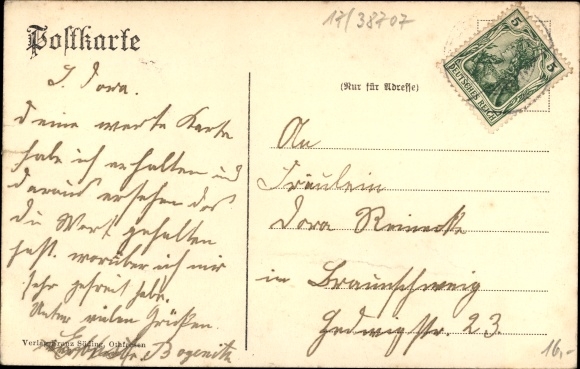 17/38707
Postkarte
5
5
DEUTSCHES REICH
(Nur für Adresse)
L. Dora.
deine werte Karte
habe ich erhalten und
daraus ersehen das
du Wort gehalten
hast. worüber ich mir
sehr gefreut habe.
Unter vielen Grüßen
An
Fräulein
Dora Reinecke
in Braunschweig
Hedwigstr. 23.
16,-
Verlag Franz